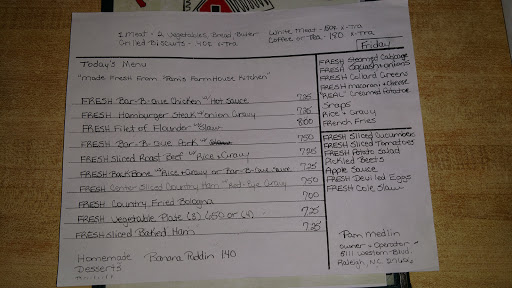 1 Meat - 2 Vegetables, Bread, Butter
Grilled Biscuits - 40¢ x-tra
White Meat - 50¢ x-tra
Coffee or Tea - 1.80 x-tra
Friday
Today's Menu
"Made Fresh From Pam's Farmhouse Kitchen"
FRESH Bar-B-Que Chicken w/ Hot Sauce 7.25
FRESH Hamburger Steak w/ Onion Gravy 7.25
FRESH Filet of Flounder w/ Slaw 8.00
FRESH Bar-B-Que Pork w/ Slaw 7.50
FRESH Sliced Roast Beef w/ Rice & Gravy 7.25
FRESH BackBone w/ Rice & Gravy or Bar-B-Que Sauce 7.25
FRESH Center Sliced Country Ham w/ Red-Eye Gravy 7.50
FRESH Country Fried Bologna 7.00
FRESH Vegetable Plate (3) 6.50 or (4) 7.25
FRESH Sliced Baked Ham 7.25
Homemade Desserts
Banana Puddin 1.40
FRESH Steamed Cabbage
FRESH Squash & Onions
FRESH Collard Greens
FRESH Macaroni & Cheese
"REAL" Creamed Potatoes
Snaps
Rice & Gravy
French Fries
FRESH Sliced Cucumbers
FRESH Sliced Tomatoes
FRESH Potato Salad
Pickled Beets
Apple Sauce
FRESH Deviled Eggs
FRESH Cole Slaw
Pam Medlin
Owner & Operator
5111 Western Blvd.
Raleigh, NC